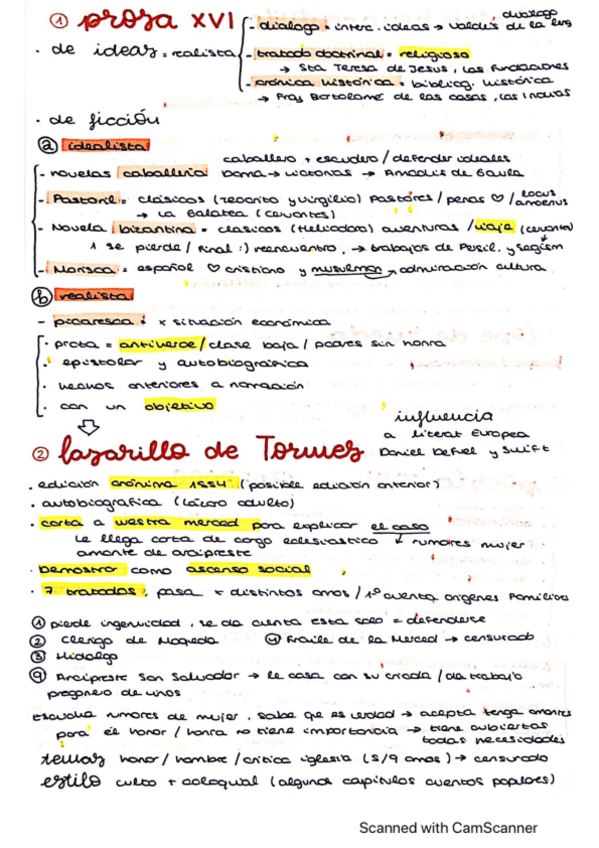 ① prosa XVI
- dialogo = interc. ideas → Valdés dialogo de la leng
· de ideas = realista
- tratado doctrinal = religioso
→ Sta Teresa de Jesus, Las Fundaciones
- cronica historica = bibliog. historica
→ Fray Bartolomé de las casas, Las Indias
· de ficción
ⓐ idealista
caballero + escudero / defender ideales
- novelas caballeria Dama → victorias → Amadis de Gaula
- Pastoril = clásicos (Teocrito y Virgilio) Pastores / penas ♡ / Locus amoenus
→ La Galatea (Cervantes)
- Novela bizantina = clasicos (Heliodoro) aventuras / viaje (Cervantes)
1 se pierde / Final :) reencuentro, → trabajos de Persil. y Segism
- Morisca = español ♡ cristiano y musulman → admiración cultura
ⓑ realista
- picaresca = x situación económica
· prota = antiheroe / clase baja / padres sin honra
· epistolar y autobiografica
· hechos anteriores a narración
· con un objetivo
influencia
a literat Europea
② Lazarillo de Tormes
Daniel Defuel y Swift
· edición anónima 1554 (posible edición anterior)
· autobiografica (Lázaro adulto)
· carta a vuestra merced para explicar el caso
Le llega carta de cargo eclesiastico ↓ rumores mujer
amante de arcipreste
· Demostrar como ascenso social
· 7 tratados, pasa x distintos amos / 1º cuenta origenes familias
① pierde ingenuidad, se da cuenta esta solo = defenderse
② Clerigo de Maqueda ④ Fraile de la Merced → censurado
③ Hidalgo
⑨ Arcipreste San Salvador → le casa con su criada / da trabajo
pregonero de vinos
Escucha rumores de mujer, sabe que es verdad → acepta tenga amantes
para él honor / honra no tiene importancia → tiene cubiertas
todas necesidades
temas honor / hambre / critica iglesia (5/9 amos) → censurado
estilo culto + coloquial (algunos capitulos cuentos populares)
Scanned with CamScanner